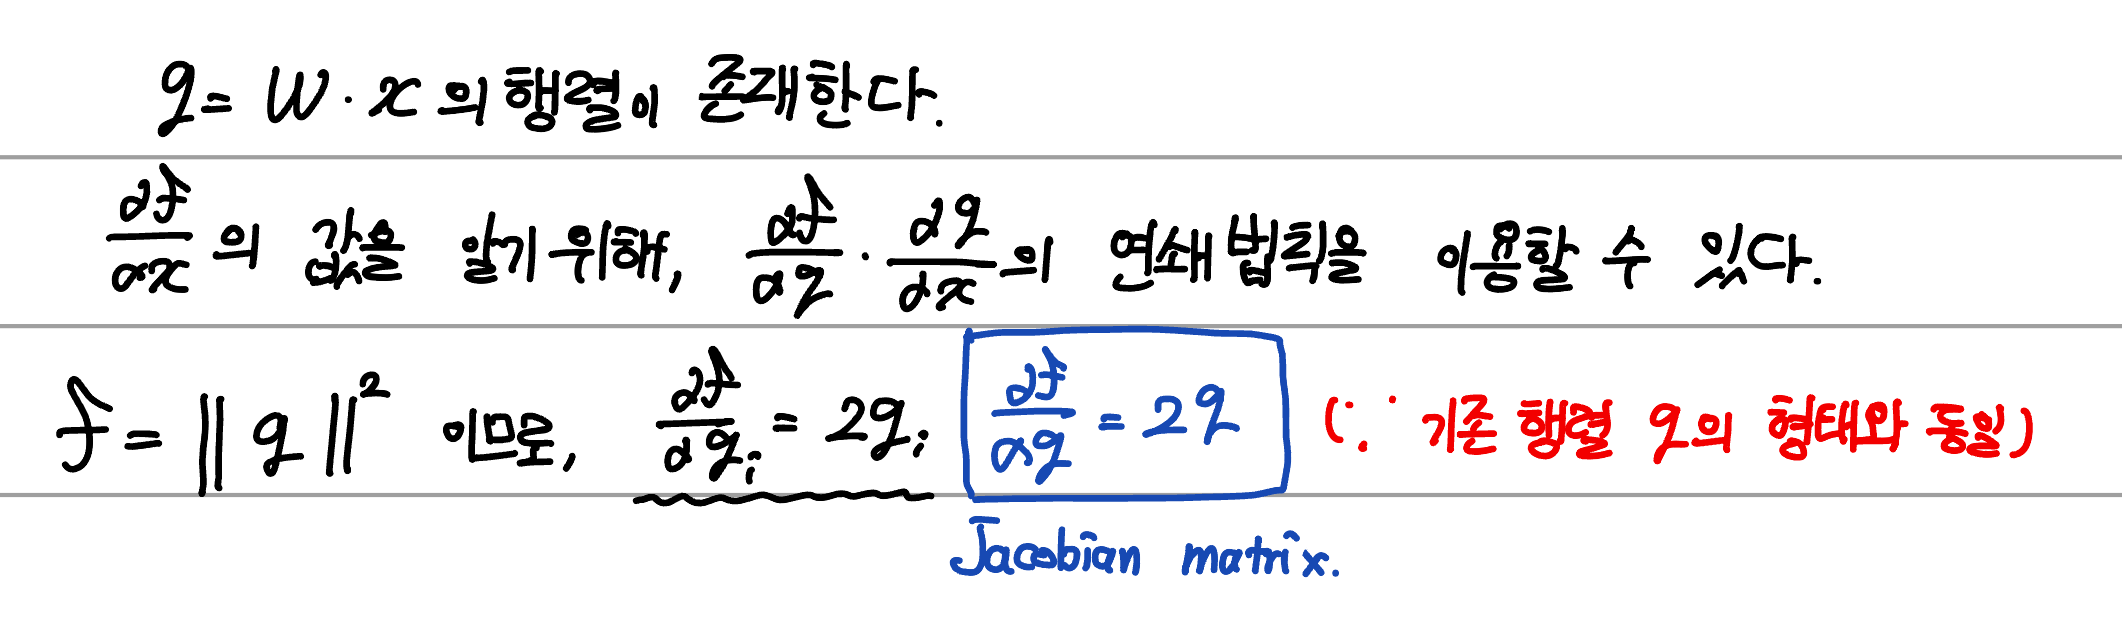 q = W · x 의 행렬이 존재한다.
∂f/∂x 의 값을 알기 위해, ∂f/∂q · ∂q/∂x 의 연쇄 법칙을 이용할 수 있다.
f = ||q||² 이므로, ∂f/∂qᵢ = 2qᵢ ∂f/∂q = 2q (∵ 기존 행렬 q의 형태와 동일)
Jacobian matrix.